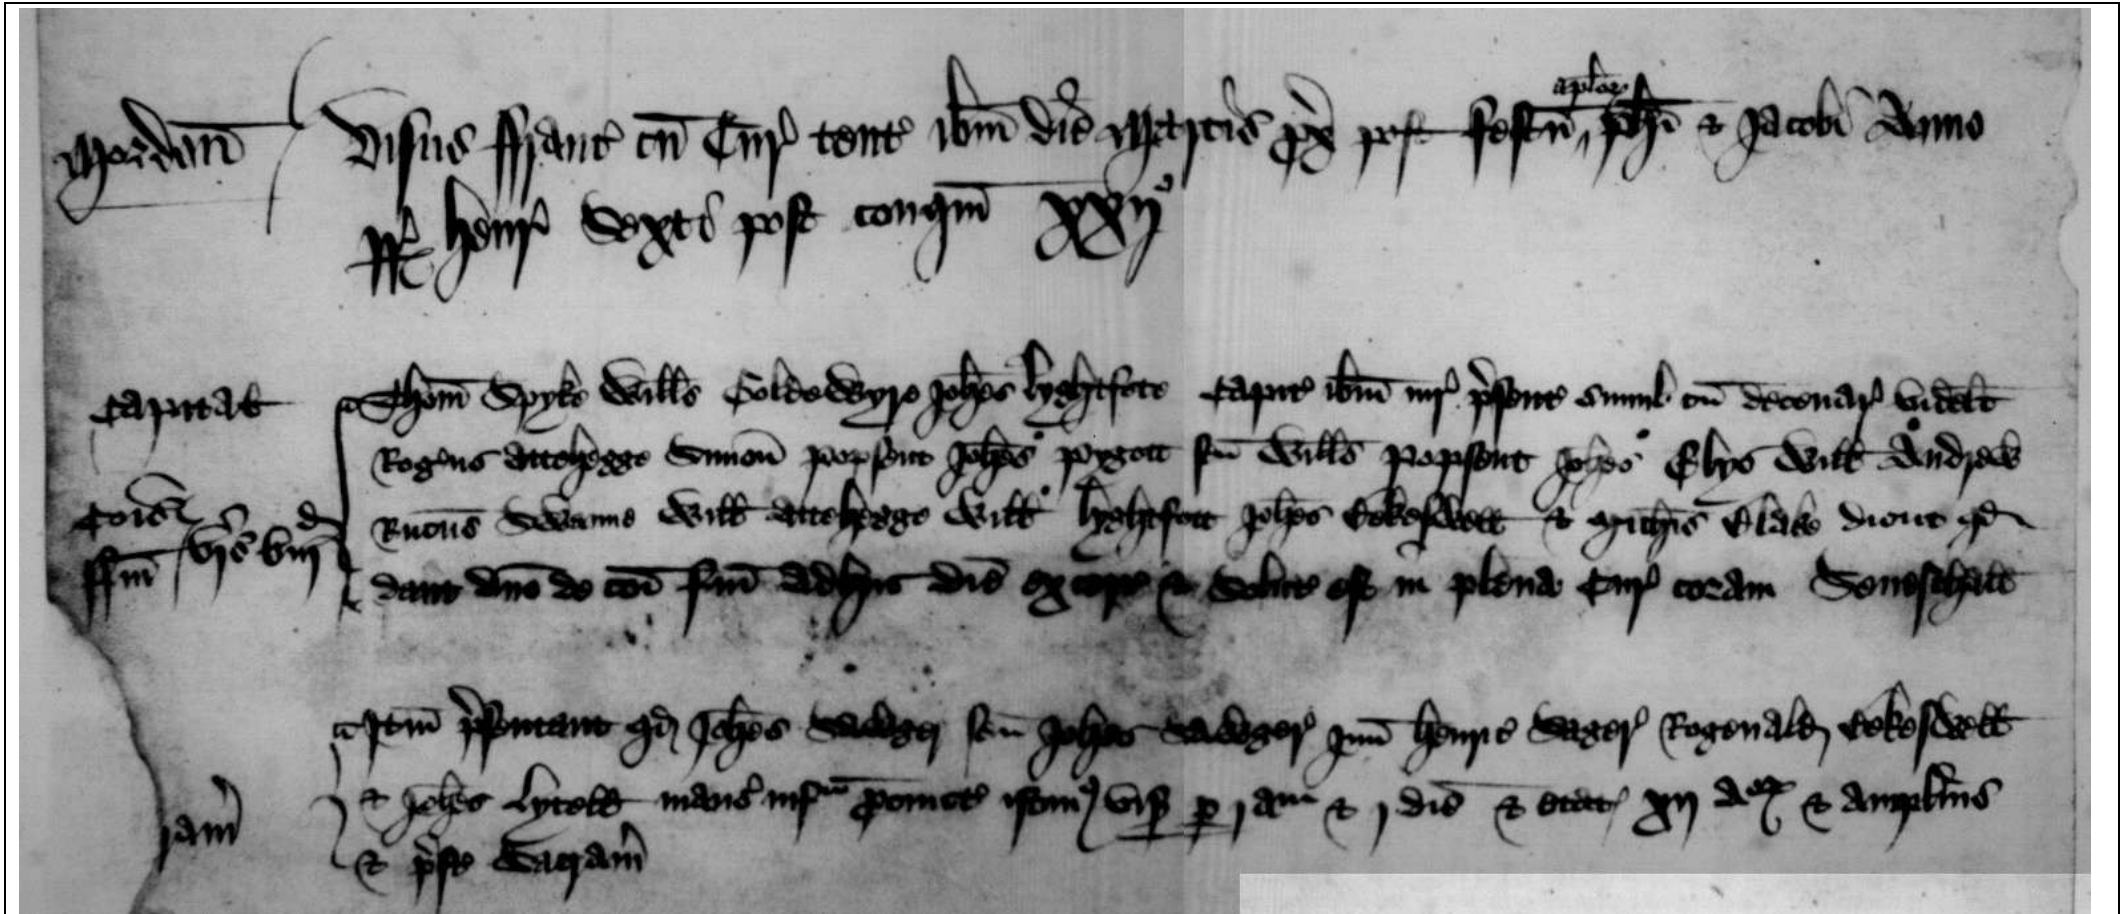 Mordon Visus ffranc cu Cur tent ibm die Martis px post festu aploꝝ Phi & Jacobi Anno
RR Henr Sexti post conqm xxij°
Capital Thom Spyke Wills Goldewyre Johes lyghtfote Capit ibm iur psent simul cu decenar videlt
Rogus attehegge Simon Popsent Johes Pygott sen Wills Popsent Johes Elys Will Andrew
Cois Ricus Swanne Will attehegge Will lyghtfott Johes Cokeswell & Michis Clake dicut qd
ffin vjs viijd dant dno de coi fin adhuc die ex cope & solut est in plena Cur coram Senescall
Itm psentant qd Johes Sawger sen Johes Sawger jun Henric Sager Rogenald Cokeswell
& Johes Lytold manet infra pcinct istius vis p j am & j die & etat xij aoꝝ & amplius
jam & pste Sacram